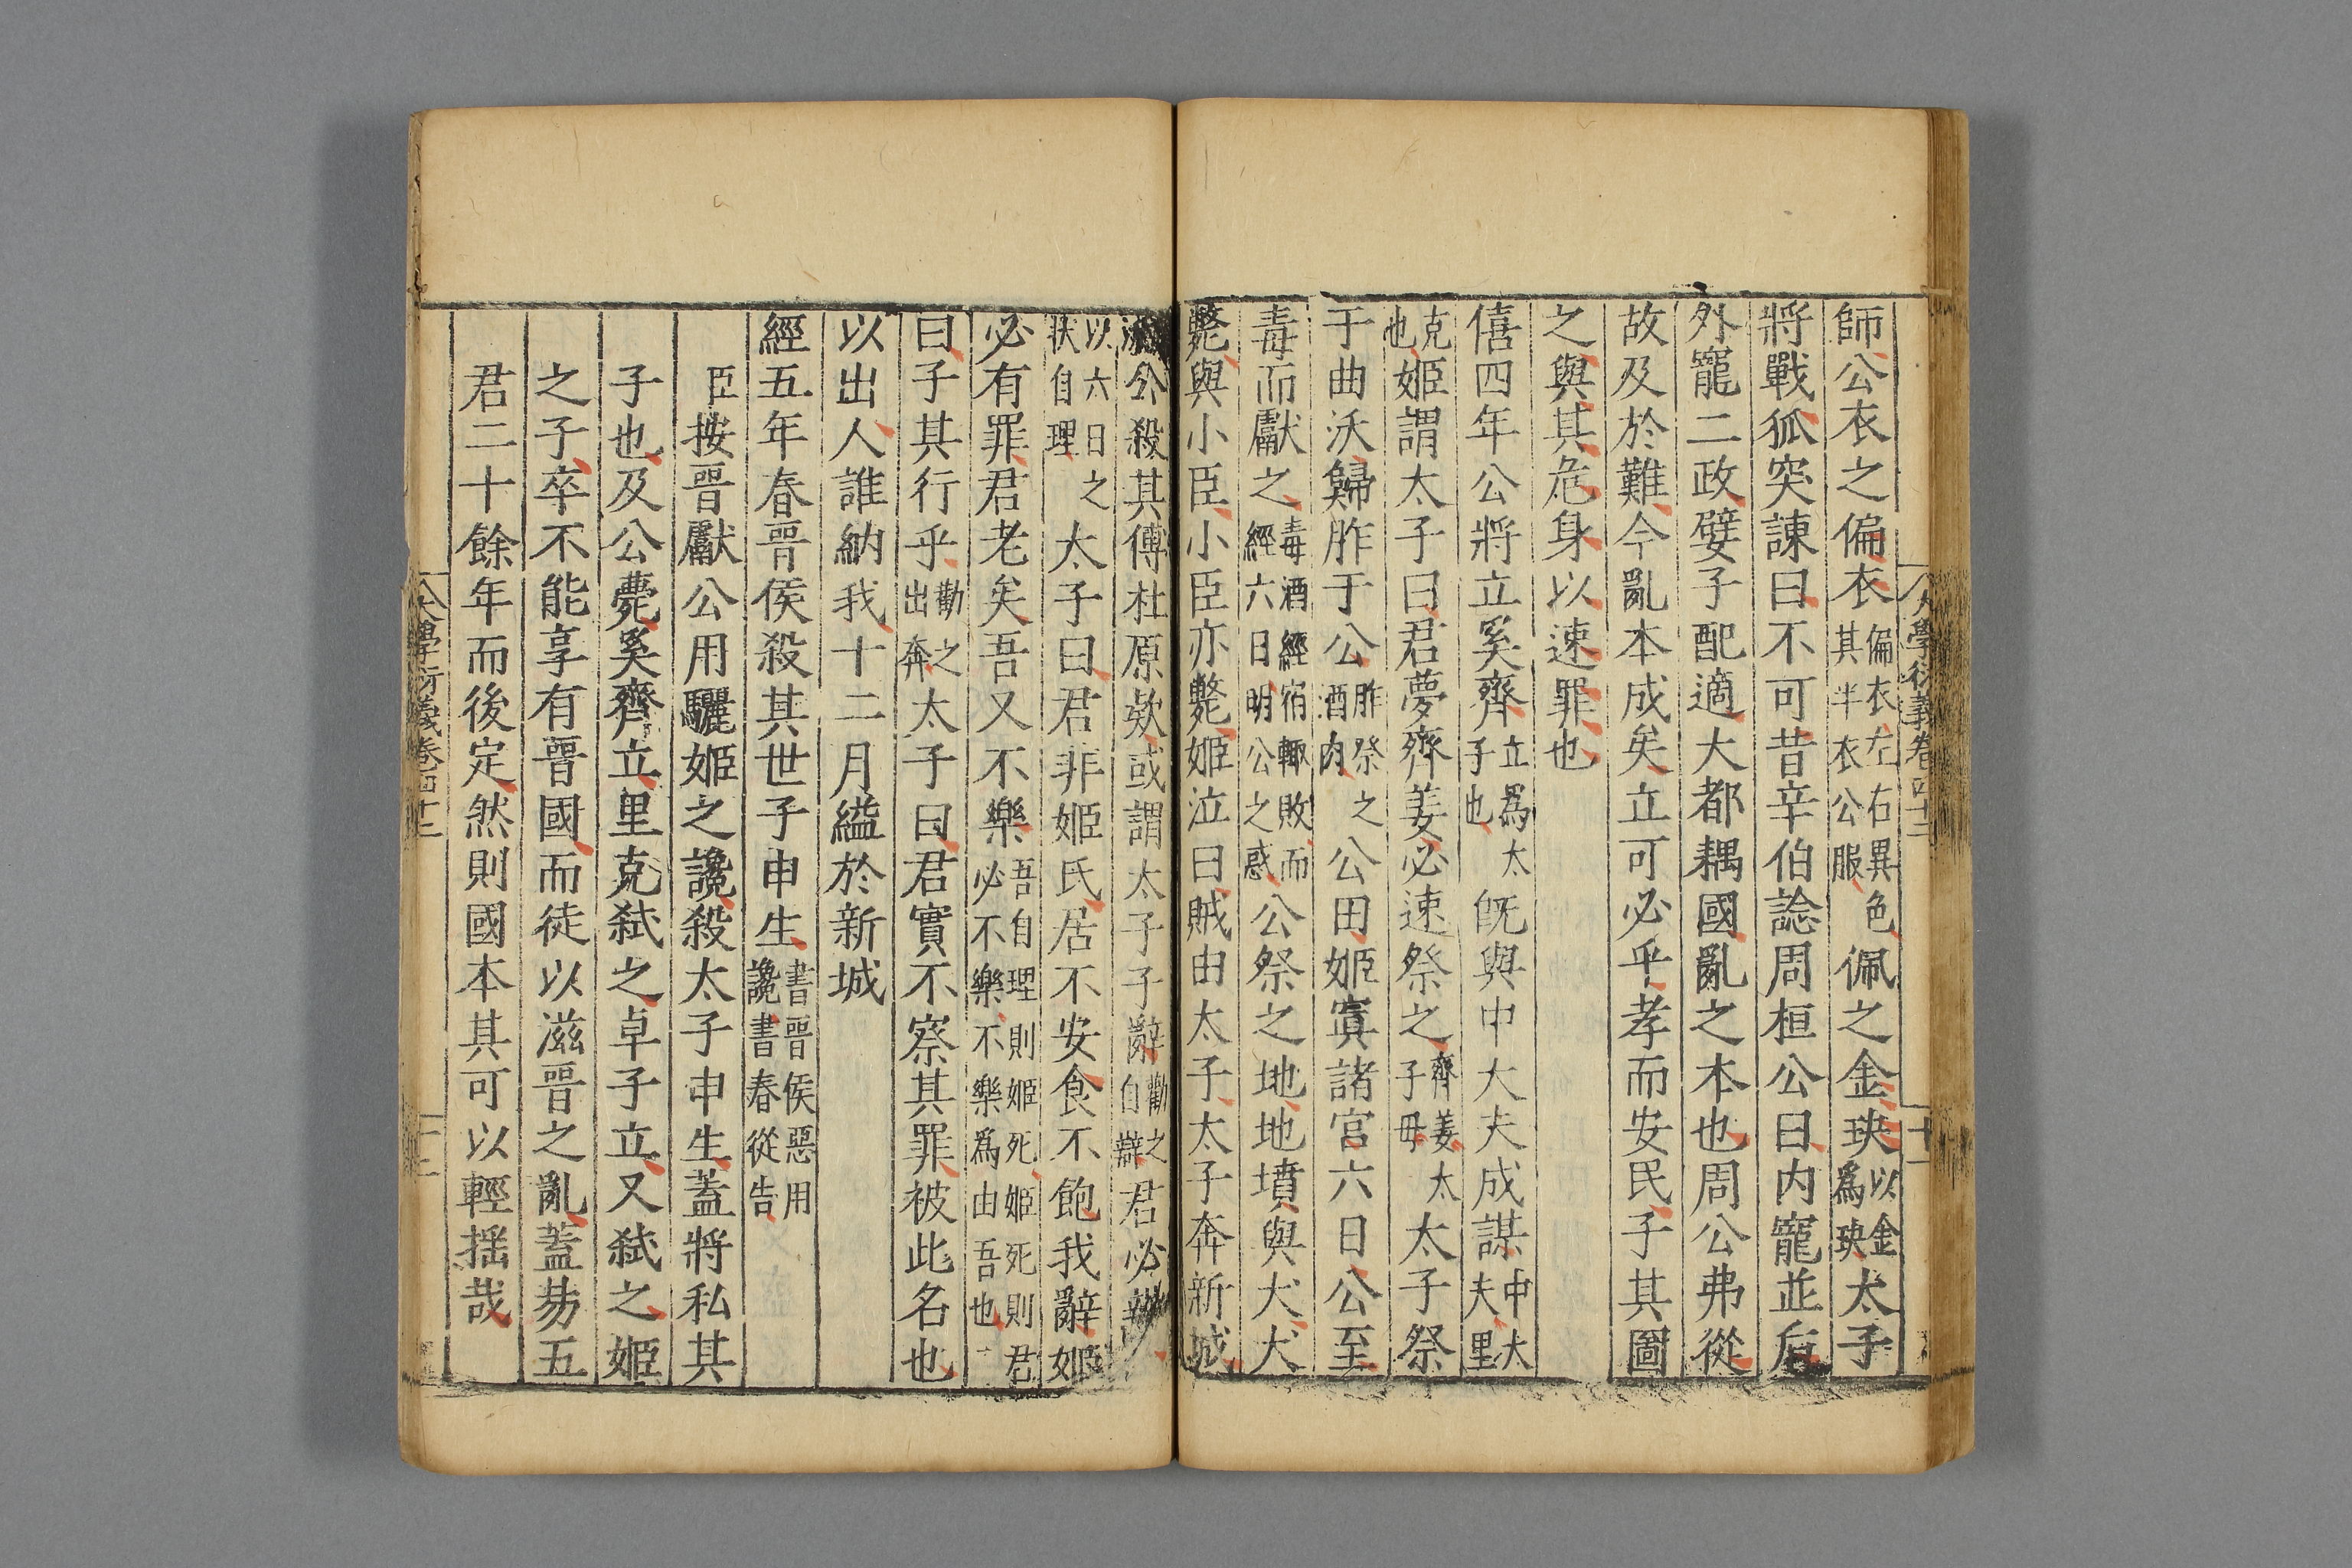 師公衣之偏衣偏衣左右異色其半衣公服佩之金玦以金爲玦太子
將戰狐突諫曰不可昔辛伯諗周桓公曰内寵並后
外寵二政嬖子配適大都耦國亂之本也周公弗從
故及於難今亂本成矣立可必乎孝而安民子其圖
之與其危身以速罪也
僖四年公將立奚齊立爲太子也既與中大夫成謀中大夫里
克也姬謂太子曰君夢齊姜必速祭之齊姜太子母太子祭
于曲沃歸胙于公胙祭之酒肉公田姬寘諸宮六日公至
毒而獻之毒酒經宿輒敗而經六日明公之惑公祭之地地墳與犬犬
斃與小臣小臣亦斃姬泣曰賊由太子太子奔新城
公殺其傅杜原款或謂太子子辭勸之自辯君必辯
以六日之狀自理太子曰君非姬氏居不安食不飽我辭姬
必有罪君老矣吾又不樂吾自理則姬死姬死則君必不樂不樂爲由吾也
曰子其行乎勸之出奔太子曰君實不察其罪被此名也
以出人誰納我十二月縊於新城
經五年春晉侯殺其世子申生書晉侯惡用讒書春從告
臣按晉獻公用驪姬之讒殺太子申生蓋將私其
子也及公薨奚齊立里克弑之卓子立又弑之姬
之子卒不能享有晉國而徒以滋晉之亂蓋易五
君二十餘年而後定然則國本其可以輕揺哉
大學衍義卷四十二